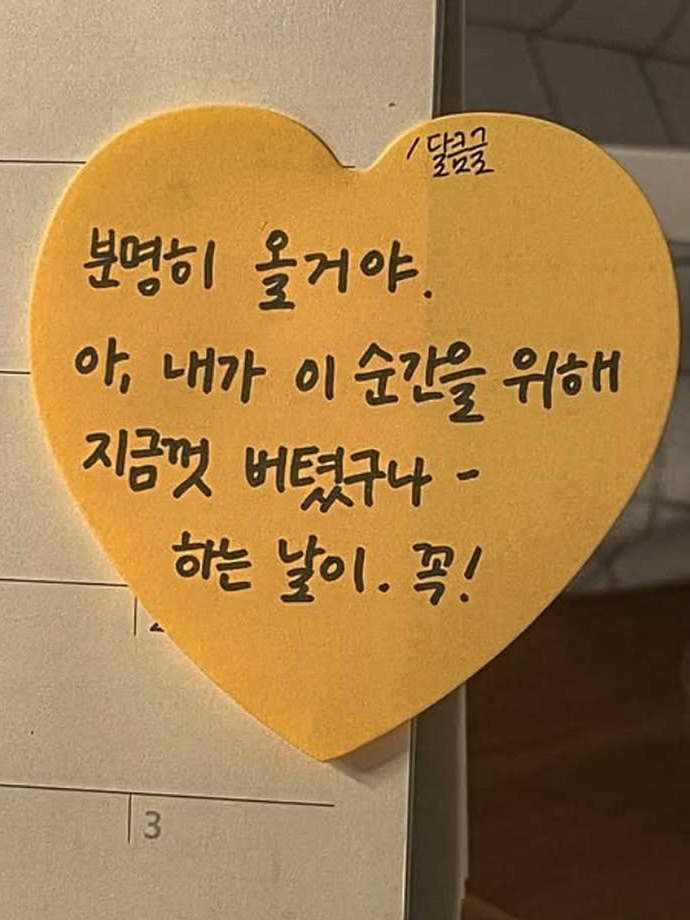 /달콤글
분명히 올거야.
아, 내가 이 순간을 위해
지금껏 버텼구나 -
하는 날이. 꼭!
3